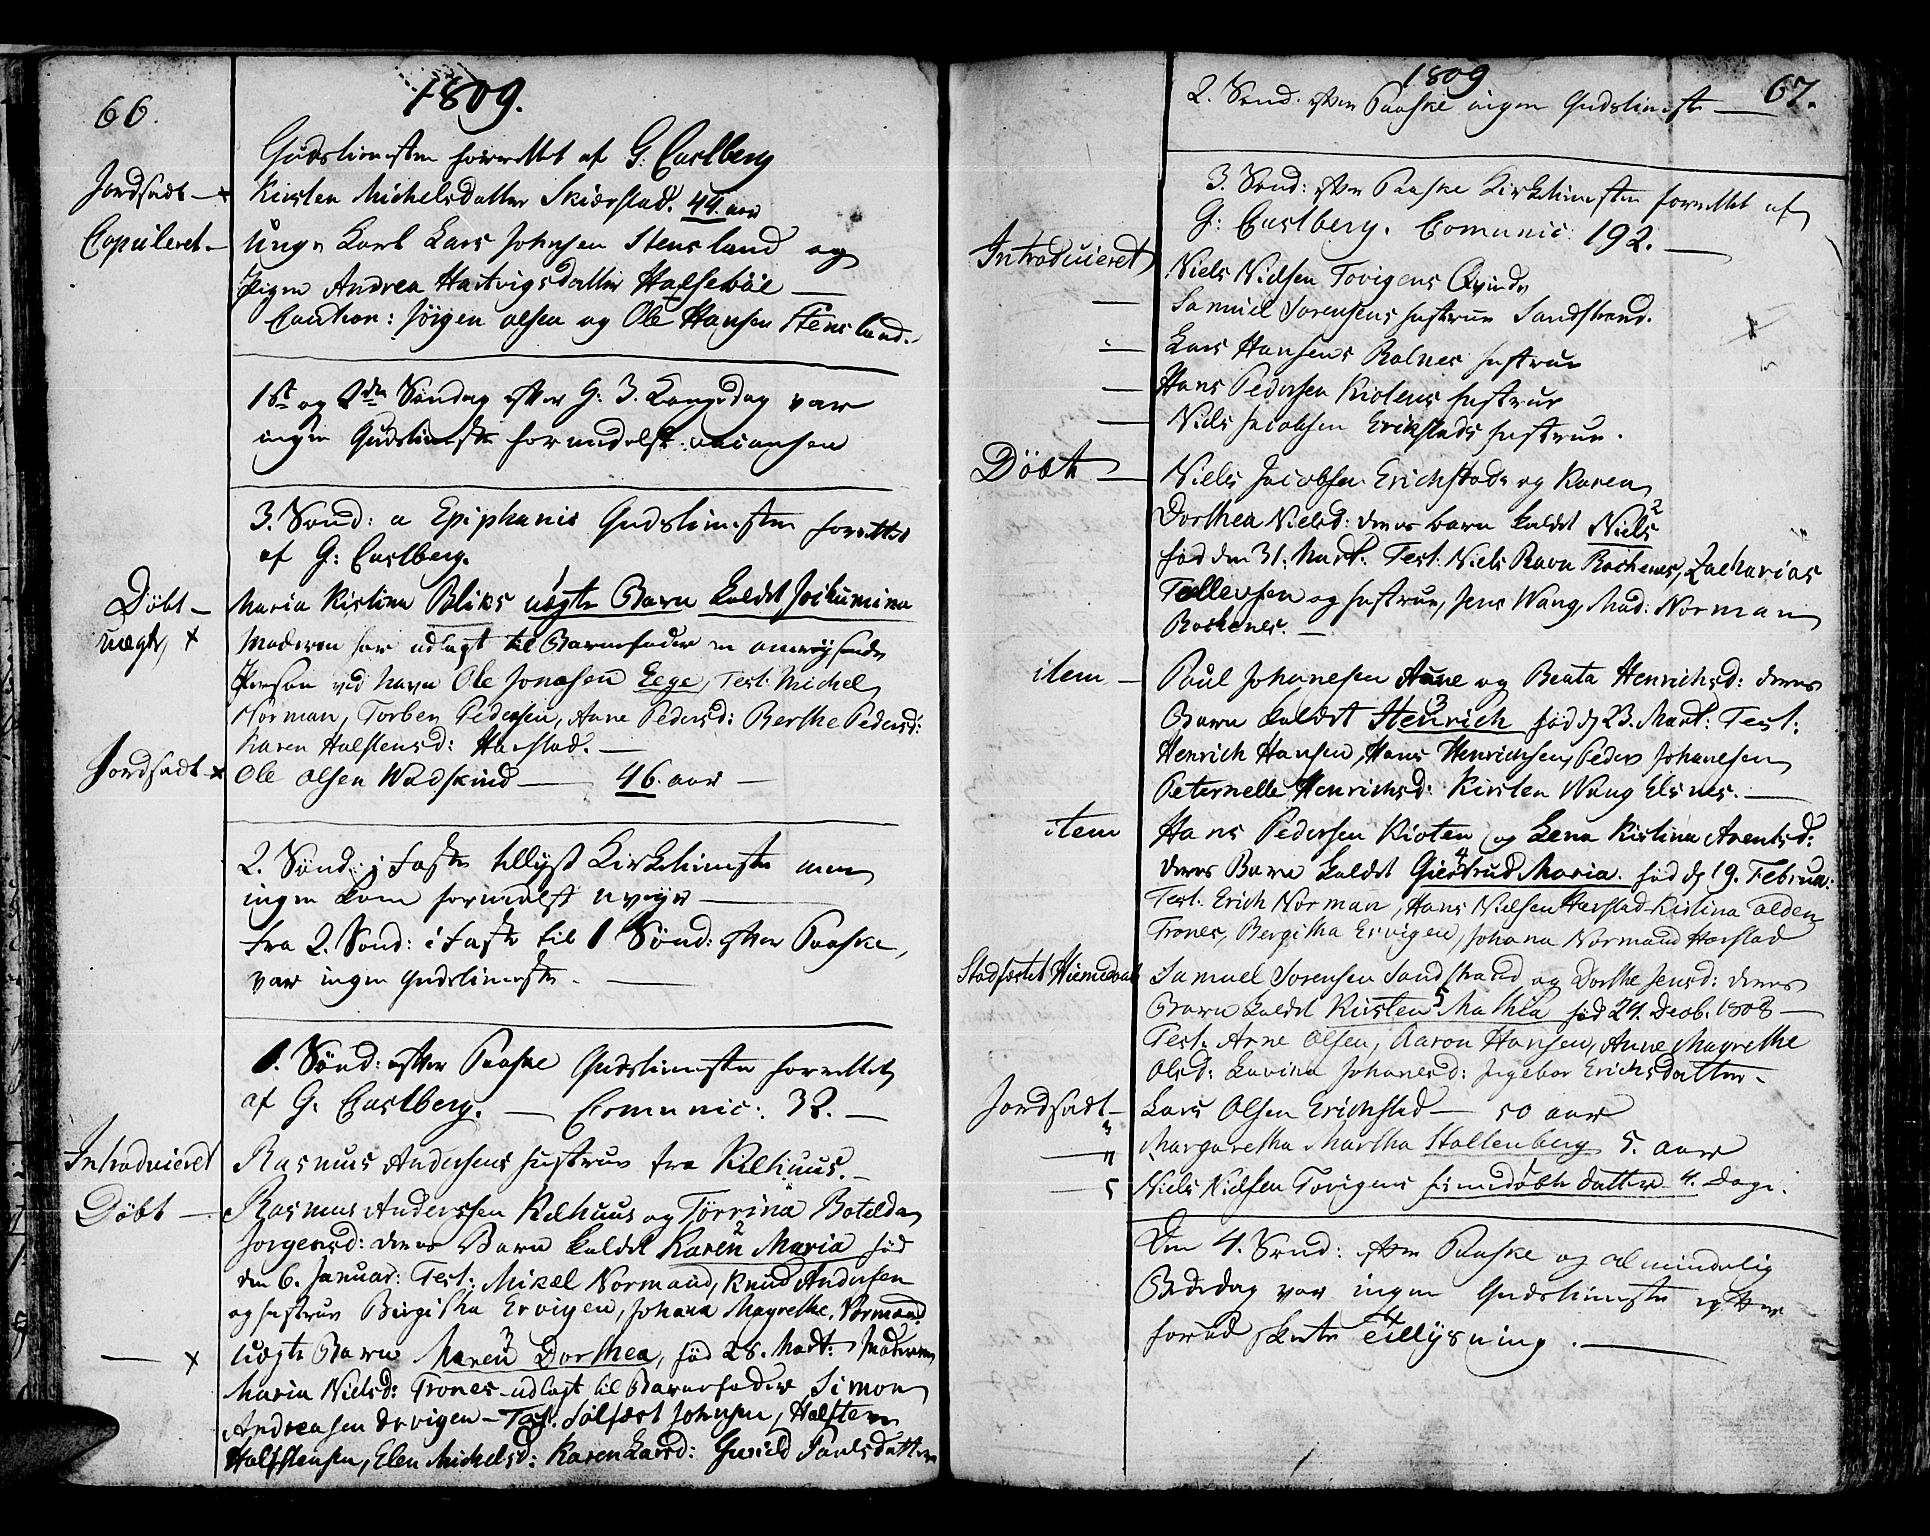 66.
1809.
Gudstienesten forrettet af G: Castberg
Jordfadt — x Kirsten Michelsdatter Skiærstad. 44. aar
Copuleret — Unge Karl Lars Johnsen Stensland og
Pigen Andrea Hartvigsdatter Halsebøe —
Caution: Jörgen Olsen og Ole Hansen Stensland.
1st og 2den Söndag efter H. 3. Kongedag var
ingen Gudstieneste formedelst
3. Sönd: a Epiphanie Gudstienesten forrettet
af G: Castberg.
Döbt — Maria Kistina Bliks uægte Barn kaldet Jockumina
uægte, x Moderen har udlagt til Barnefader en omreysende
Person ved navn Ole Jonassen Eege, Test: Michel
Norman, Torben Pedersen, Anne Pedersd: Berthe Pedersd:
Karen Halstensd: Harstad. —
Jordfadt x Ole Olsen Wadskind — 46. aar —
2. Sönd: i Faste tillyst Kirketieneste men
ingen kom formedelst uveyr —
fra 2. Sönd: i Faste til 1 Sönd: efter Paaske,
var ingen Gudstieneste. —
1. Sönd: efter Paaske Gudstienesten forrettet
af G: Castberg. — Comunic: 32. —
Introduceret Rasmus Andersens hustrue fra Kilhuus. —
Döbt — Rasmus Anderssen Kilhuus og Törrina Botilda
Jörgensd: deres Barn kaldet Karen 2 Maria föd
den 6. Januar: Test: Mikel Normand, Knud Andersen
og hustrue Birgitha Ervigen, Johana Magrethe Normand
— x uægte Barn Maren 3 Dorthea, föd 28. Mart: Moderen
Maria Nielsd: Trones udlagt til Barnefader Simon
Andreasen Ervigen — Test. Sölfæst Johnsen, Halsten
Halstensen, Elen Michelsd: Karen Larsd: Gunild Paulsdatter
1809
67.
2. Sönd. efter Paaske ingen Gudstieneste —
3. Sönd: efter Paaske Kirketienesten forrettet af
G: Castberg. Comunic: 192. —
Introduceret Niels Nielsen Tovigens Qvinde
— Samuel Sorensens hustrue Sandstrand.
— Lars Hansens Rolnes hustrue
— Hans Pedersen Kiotens hustrue
— Niels Jacobsen Erikstads hustrue.
Döbt — Niels Jacobsen Erichstads og Karen
Dorthea Nielsd: deres barn kaldet Niels 2
föd den 31. Mart: Test: Niels Ravn Rochenes, Zacharias
Tellevsen og hustrue, Jens Wang, Mad: Norman
Rochenes. —
item — Paul Johanesen Aune og Beata Henrichsd: deres
Barn kaldet Henrich 3 föd d 23. Mart: Test:
Henrich Hansen, Hans Henrichsen, Peder Johanesen
Peternelle Henrichsd: Kirsten Wang Elsnes. —
item Hans Pedersen Kioten og Lena Kistina Arentsd:
deres Barn kaldet Giertrud 4 Maria. föd d 19. Februa:
Test: Erich Norman, Hans Nielsen Harstad Kistina Tolden
Trones, Bergitha Ervigen, Johana Normand Harstad
Stadfæstet Hiemedaab Samuel Sorensen Sandstrand og Dorthe Jensd: deres
Barn kaldet Kirsten 5 Mathea föd 24. Decb. 1808 —
Test: Arne Olsen, Aaron Hansen, Anne Magrethe
Olsd: Lavina Johanesd: Ingebor Erichsdatter —
Jordfadt — Lars Olsen Erichstad — 50 aar
— Margaretha Martha Stoltenberg 5. aar
— Niels Nielsen Tovigens hiemedöbte datter 4. Dage.
Den 4. Sönd: efter Paaske og almindelig
Bededag var ingen Gudstieneste efter
forud skeete Tillysning. —